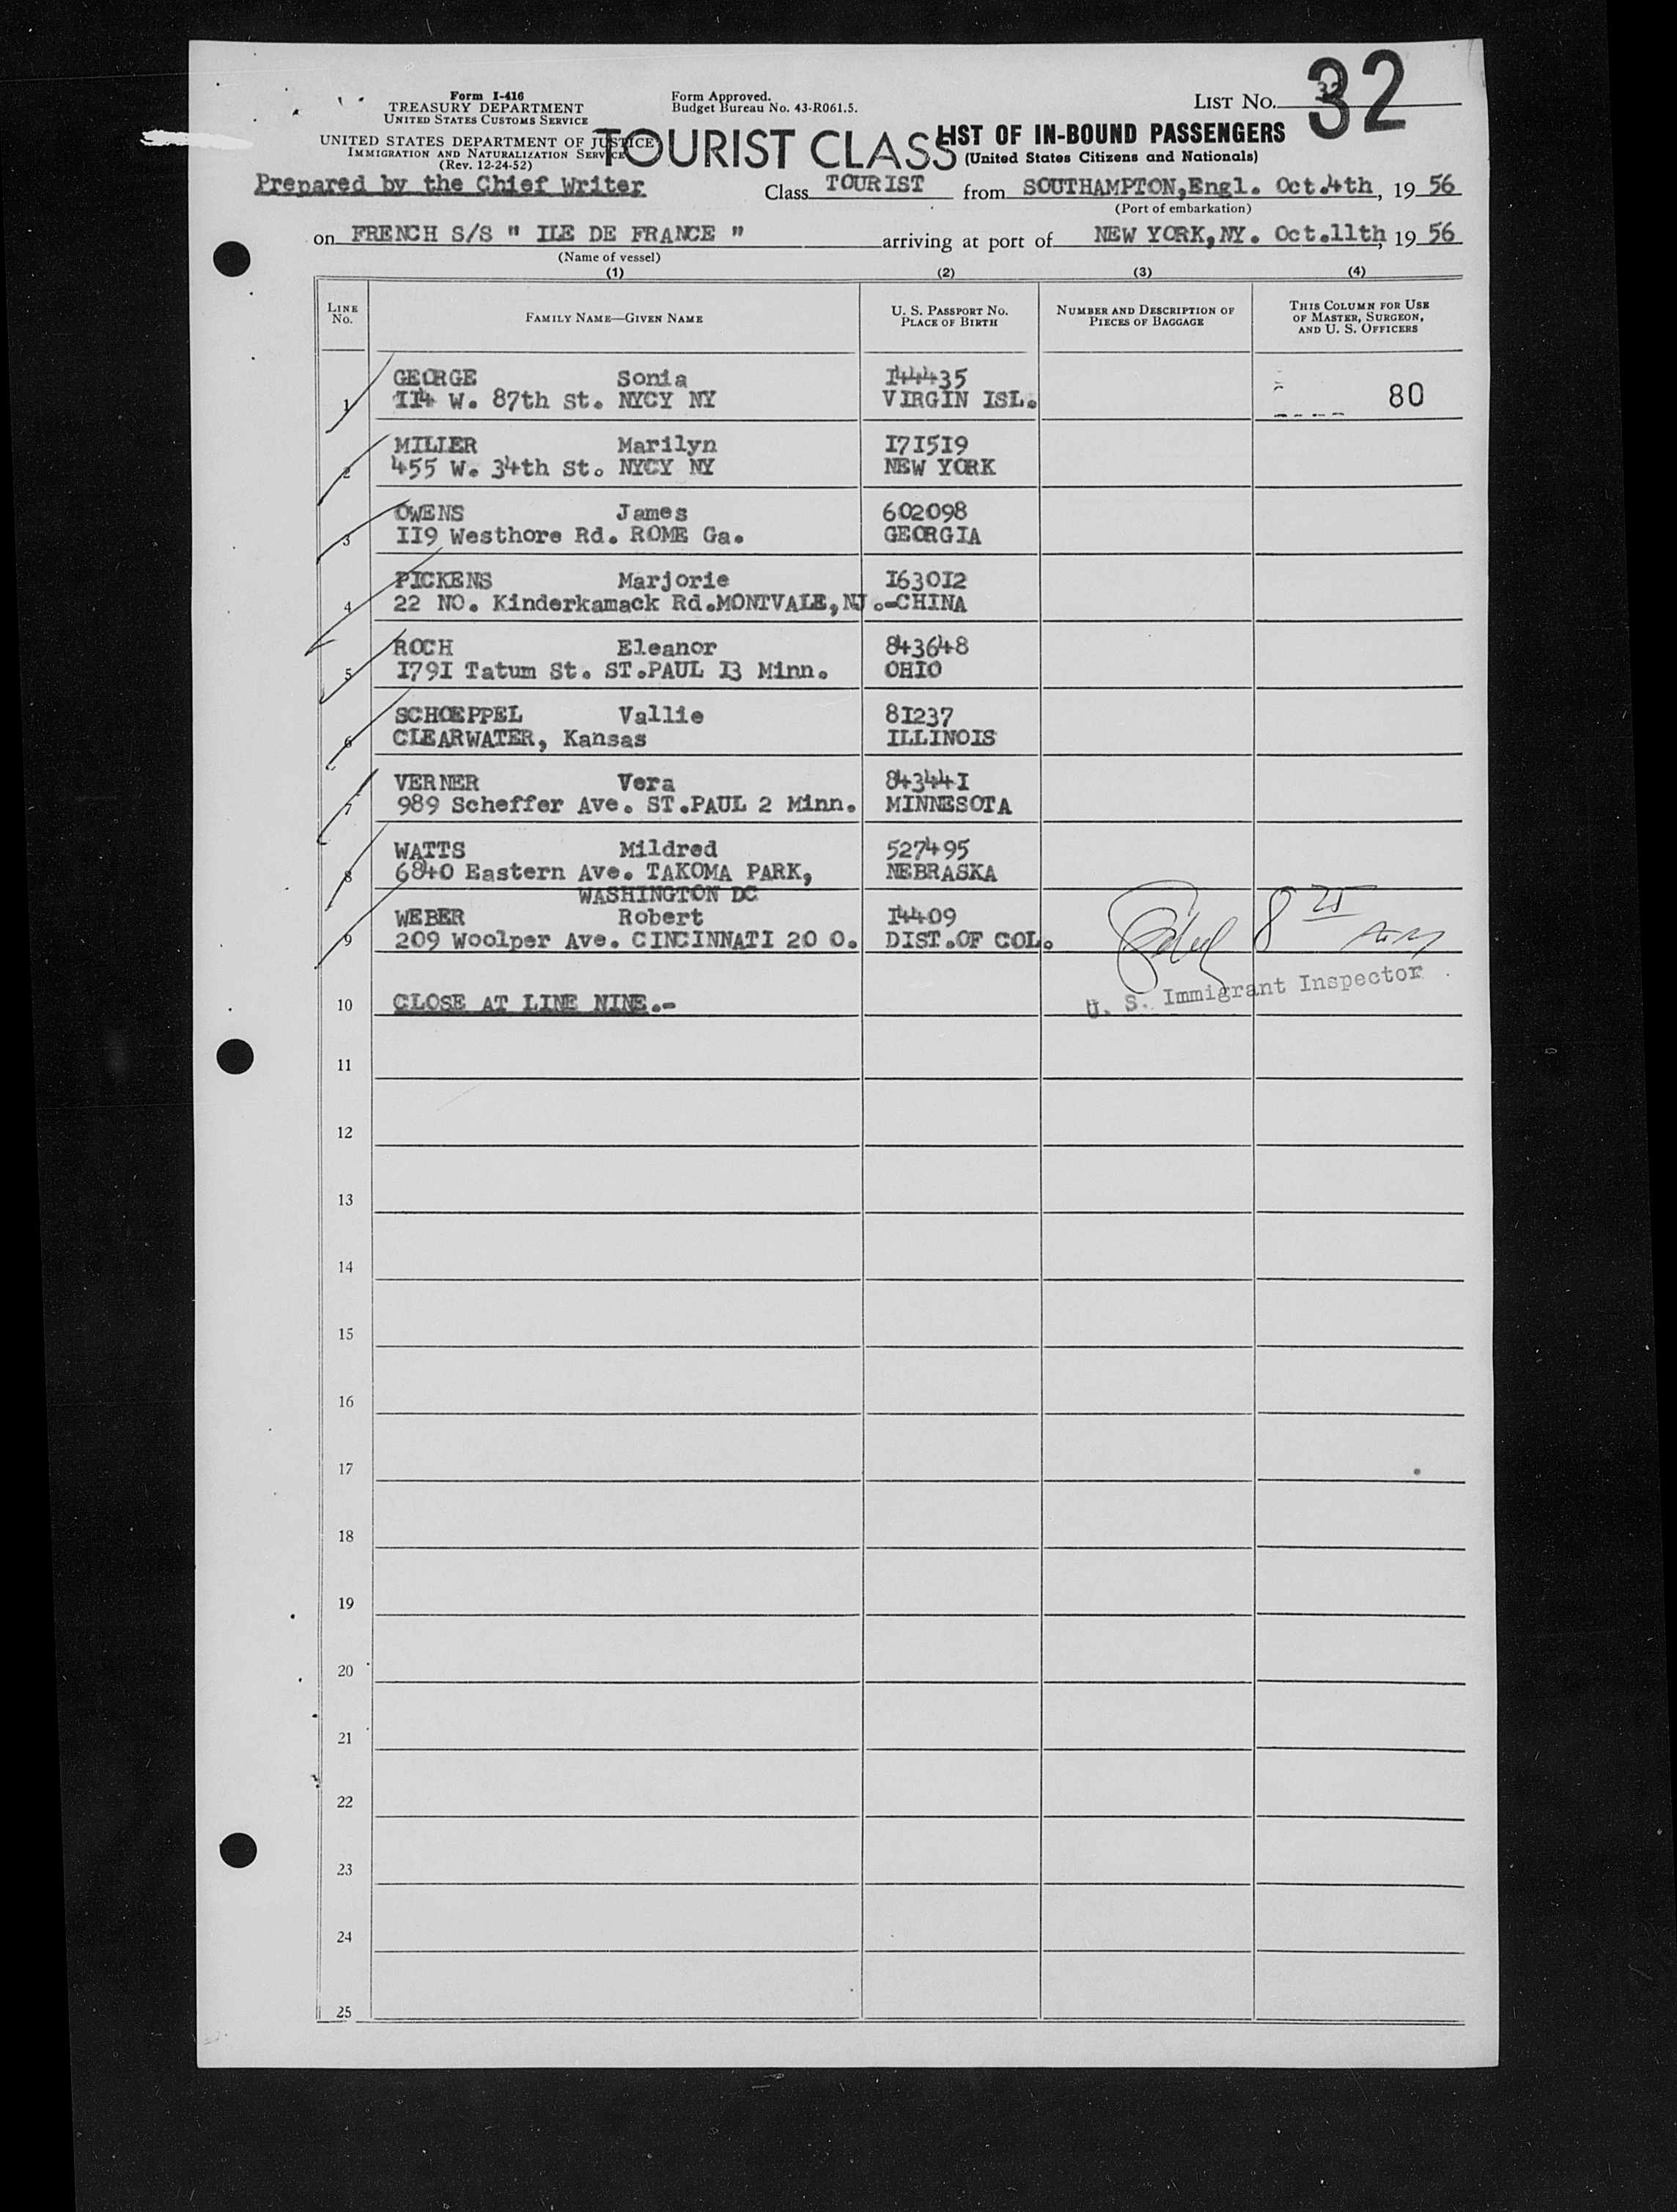 Form I-416
TREASURY DEPARTMENT
UNITED STATES CUSTOMS SERVICE
UNITED STATES DEPARTMENT OF JUSTICE
IMMIGRATION AND NATURALIZATION SERVICE
(Rev. 12-24-52)
Form Approved.
Budget Bureau No. 43-R061.5.
LIST NO. 32
TOURIST CLASS
LIST OF IN-BOUND PASSENGERS
(United States Citizens and Nationals)
Prepared by the Chief Writer
Class TOURIST from SOUTHAMPTON,Engl. Oct.4th, 19 56
(Port of embarkation)
on FRENCH S/S " ILE DE FRANCE " arriving at port of NEW YORK,NY. Oct.11th, 19 56
(Name of vessel)
(1) (2) (3) (4)
LINE NO. FAMILY NAME—GIVEN NAME U. S. PASSPORT NO. PLACE OF BIRTH NUMBER AND DESCRIPTION OF PIECES OF BAGGAGE THIS COLUMN FOR USE OF MASTER, SURGEON, AND U. S. OFFICERS
GEORGE Sonia I44435
1 II4 W. 87th St. NYCY NY VIRGIN ISL. 80
MILLER Marilyn I7I5I9
2 455 W. 34th St. NYCY NY NEW YORK
OWENS James 602098
3 II9 Westhore Rd. ROME Ga. GEORGIA
PICKENS Marjorie I630I2
4 22 NO. Kinderkamack Rd.MONTVALE,NJ.-CHINA
ROCH Eleanor 843648
5 I79I Tatum St. ST.PAUL I3 Minn. OHIO
SCHOEPPEL Vallie 8I237
6 CLEARWATER, Kansas ILLINOIS
VERNER Vera 84344I
7 989 Scheffer Ave. ST.PAUL 2 Minn. MINNESOTA
WATTS Mildred 527495
8 6840 Eastern Ave. TAKOMA PARK, NEBRASKA
WASHINGTON DC
WEBER Robert I4409
9 209 Woolper Ave. CINCINNATI 20 O. DIST.OF COL.
8 25 AM
U. S. Immigrant Inspector
10 CLOSE AT LINE NINE.-
11
12
13
14
15
16
17
18
19
20
21
22
23
24
25